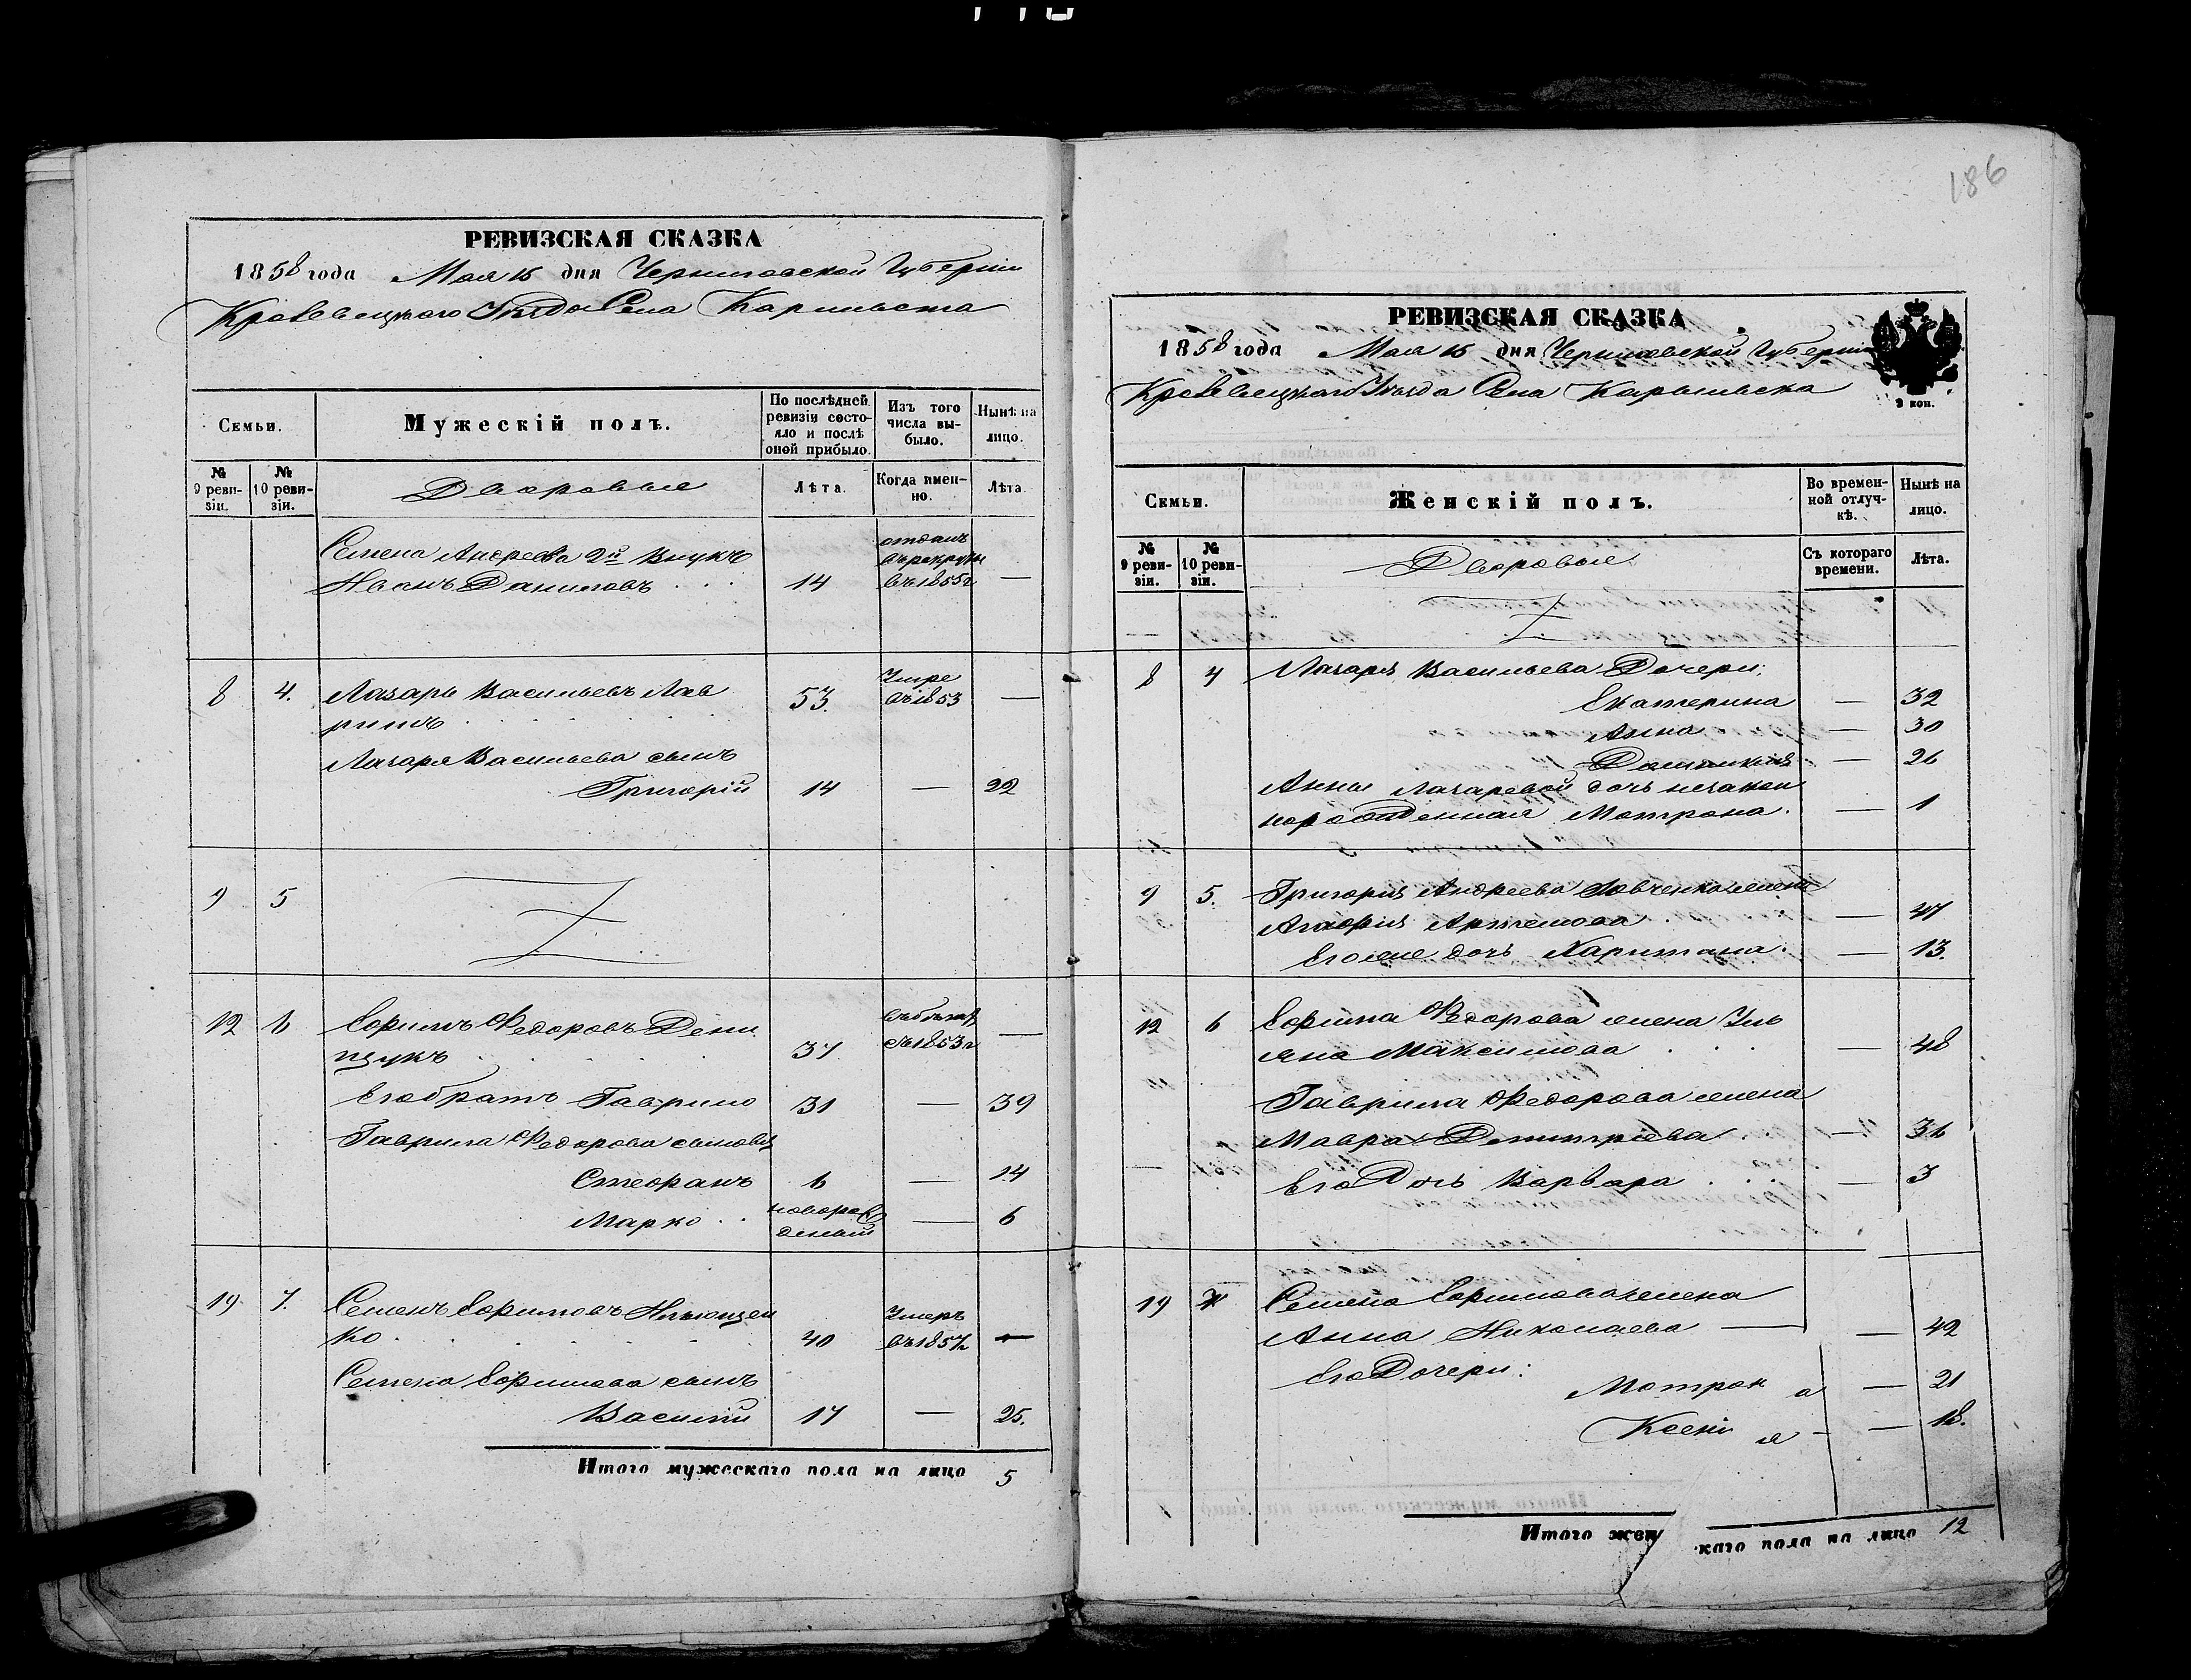 186
РЕВИЗСКАЯ СКАЗКА
1858 года Мая 15 дня Черниговской Губерніи
Кролевецкаго Уезда Села Карыльска
Семьи.
Мужескій полъ.
По послѣдней ревизіи состояло и послѣ оной прибыло.
Изъ того числа выбыло.
Нынѣ на лицо.
№ 9 ревизіи.
№ 10 ревизіи.
Дворовые
Лѣта.
Когда именно.
Лѣта.
Семена Андреева 2й внукъ
Иванъ Даниловъ . . . 14 отданъ въ рекруты въ 1855г —
8 4. Лазарь Васильевъ Лав
ринъ . . . . . 53. Умре въ 1853 —
Лазаря Васильева сынъ
Григорій 14 — 22
9 5
12 6 Ефимъ Федоровъ Дени
щукъ . . . . 37 въ бегах съ 1853г —
Его братъ Гаврило 31 — 39
Гаврила Федорова сыновья
Стефанъ 6 — 14
Марко . . новорожденый — 6
19 7. Семенъ Ефимовъ
ко . . . . . 40 Умеръ въ 1857г —
Семена Ефимова сынъ
Василій 17 — 25.
Итого мужескаго пола на лицо 5
РЕВИЗСКАЯ СКАЗКА
1858 года Мая 15 дня Черниговской Губерніи
Кролевецкаго Уезда Села Карыльска
9 коп.
Семьи.
Женскій полъ.
Во временной отлучкѣ.
Нынѣ на лицо.
№ 9 ревизіи.
№ 10 ревизіи.
Дворовые
Съ котораго времени.
Лѣта.
8 4 Лазаря Васильева Дочери:
Екатерина — 32
Анна — 30
— 26
Анны Лазаревой дочь незакон
норожденная Мотрона. — 1
9 5. Григорія Андреева Савченка жена
Агафія Артемова . — 47
Его же дочь Харитана. — 13.
12 6 Ефима Федорова жена Уль
яна Максимова . . . — 48
Гаврила Федорова жена
Мавра Дмитріева . — 36
Его Дочь Варвара . . . — 3
19 7 Семена Ефимова жена
Анна Николаева — — 42
Его Дочери:
Мотрона — 21
Ксенія — — 18.
Итого женскаго пола на лицо 12